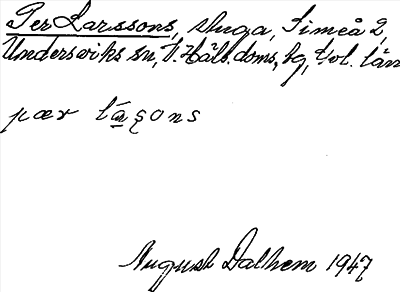 Per Larssons, stuga, Simeå 2,
Undersviks sn, V. Häls. doms, sg, Gvl. län
pær lasons
August Dalhem 1947